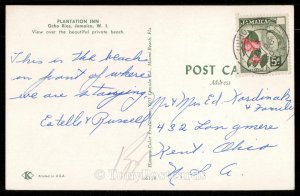 PLANTATION INN
Ocho Rios, Jamaica, W. I.
View over the beautiful private beach.
This is the beach
in front of where
we are staying
Estelle & Russell
POST CA
JAMAICA
Mr & Mrs Ed Kardinal
& Family
432 Longmere
Kent. Ohio
U.S.A.
K
Printed in U.S.A.